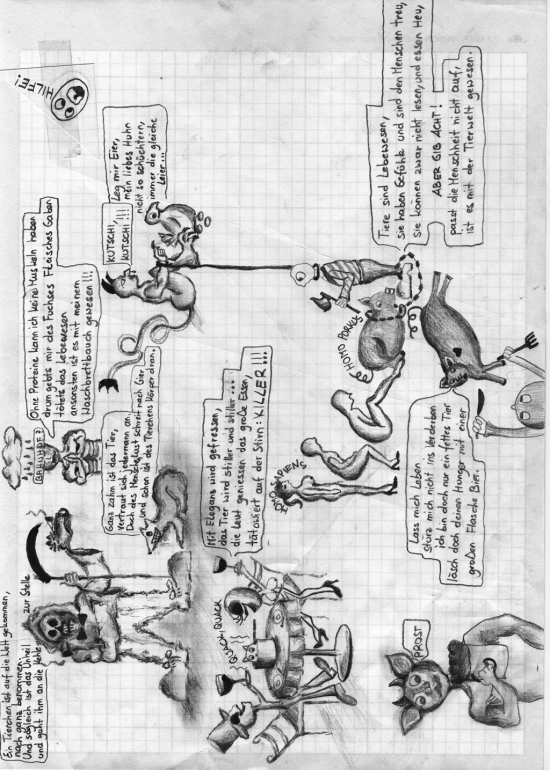 Ein Tierchen ist auf die Welt gekommen,
noch ganz benommen.
Und sogleich ist das Unheil zur Stelle
und geht ihm an die Kehle
BAHNHOF?
Ohne Proteine kann ich keine Muskeln haben
drum gebts mir des Fuchses Fleisches Gaben
tötets das Lebewesen
ansonsten ist es mit meinem
Waschbrettbauch gewesen!!!
HILFE!
KUTSCHI,
KUTSCHI!!!
Leg mir Eier,
mein liebes Huhn
nicht so schüchtern,
immer die gleiche
Leier...
Ganz zahm ist das Tier,
vertraut sich jedermann an.
Doch des Menschenlust schreit nach Gier
und schon ist des Tierchens Körper dran.
QUACK QUACK
Mit Elegans wird gefressen,
das Tier wird stiller und stiller...
die Leut geniessen das große Essen,
tätowiert auf der Stirn: KILLER!!!
HOMO SAPIENS
HOMO PORKUS
Tiere sind Lebewesen,
sie haben Gefühle und sind den Menschen treu,
sie können zwar nicht lesen, und essen Heu,
ABER GIB ACHT!
passt die Menschheit nicht auf,
ist es mit der Tierwelt gewesen.
PROST
Lass mich Leben
stürz mich nicht ins Verderben
ich bin doch nur ein fettes Tier
läsch doch deinen Hunger mit einer
großen Flasche Bier.